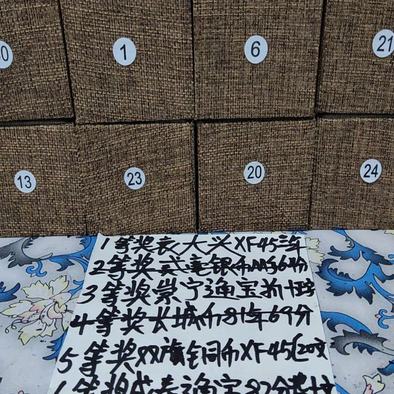 1 6 21
13 23 20 24
1等奖袁大头XF45三年
2等奖武毫银币
3等奖崇宁通宝折十
4等奖长城币81年69分
5等奖双旗铜币XF45(20文
通宝82分